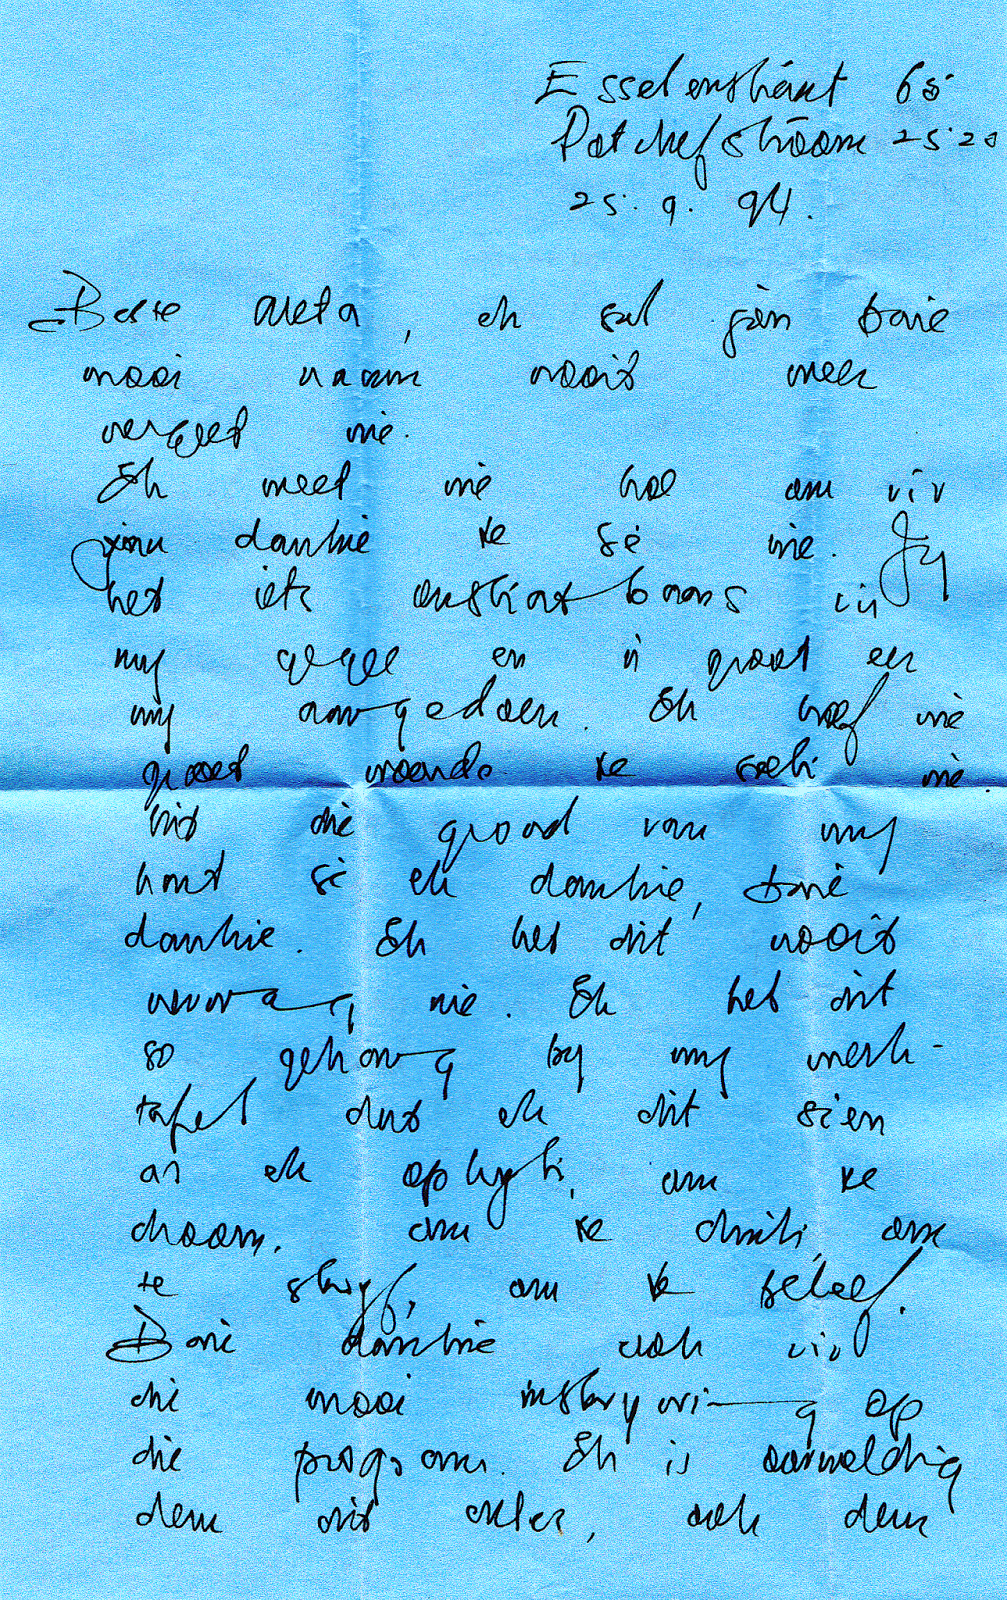 Esselenstraat 65
Potchefstroom 2520
25.9.94.
Beste Aleta, ek sal jou baie
mooi naam nooit meer
vergeet nie.
Ek weet nie hoe om vir
jou dankie te sê nie. Jy
het iets onskatbaars vir
my gegee en 'n groot eer
my aangedoen. Ek hoef nie
groot woorde te soek nie
uit die grond van my
hart sê ek dankie, baie
dankie. Ek het dit nooit
verwag nie. Ek het dit
so gehang by my werk-
tafel dat ek dit sien
as ek opkyk, om te
droom, om te dink, om
te skryf, om te beleef.
Baie dankie ook vir
die mooi inskrywing op
die program. Ek is oorweldig
deur dit alles, ook deur